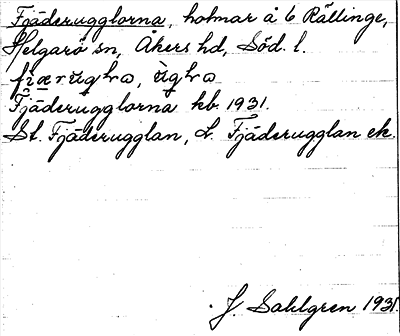 Fjäderugglorna, holmar å 6 Rällinge,
Helgarö sn, Åkers hd, Söd. l.
Fjäderugglorna kb. 1931.
St. Fjäderugglan, L. Fjäderugglan ek.
J. Sahlgren 1931.